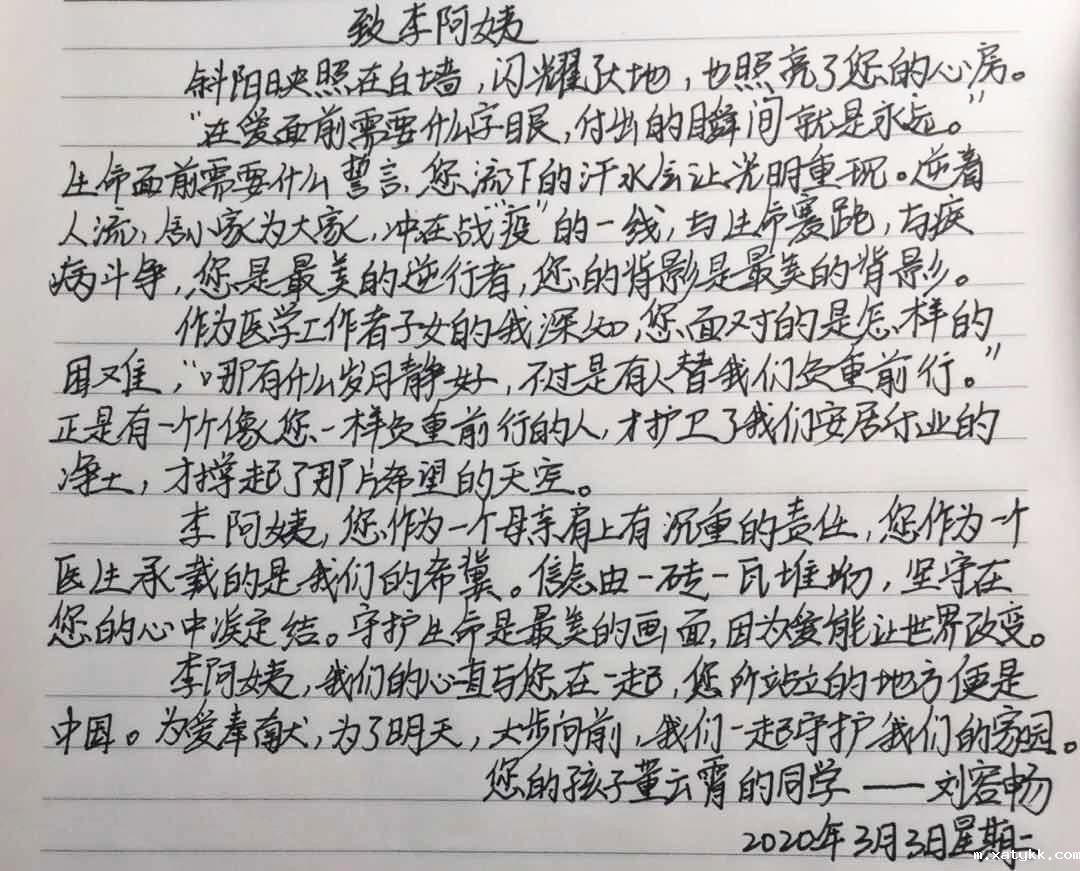 致李阿姨
斜阳映照在白墙，闪耀了大地，也照亮了您的心房。
“在爱面前需要什么字眼，付出的瞬间就是永远。”
生命面前需要什么誓言，您流下的汗水会让光明重现。逆着
人流，舍小家为大家，冲在战“疫”的一线，与生命赛跑，与疾
病斗争，您是最美的逆行者，您的背影是最美的背影。
作为医学工作者子女的我深知，您面对的是怎样的
困难，“哪有什么岁月静好，不过是有人替我们负重前行。”
正是有一个个像您一样负重前行的人，才护卫了我们安居乐业的
净土，才撑起了那片希望的天空。
李阿姨，您作为一个母亲肩上有沉重的责任，您作为一个
医生承载的是我们的希冀。信念由一砖一瓦堆砌，坚守在
您的心中凝定结。守护生命是最美的画面，因为爱能让世界改变。
李阿姨，我们的心一直与您在一起，您所站立的地方便是
中国。为爱奉献，为了明天，大步向前，我们一起守护我们的家园。
您的孩子董云霄的同学——刘容畅
2020年3月3日星期二
m.xatykk.com